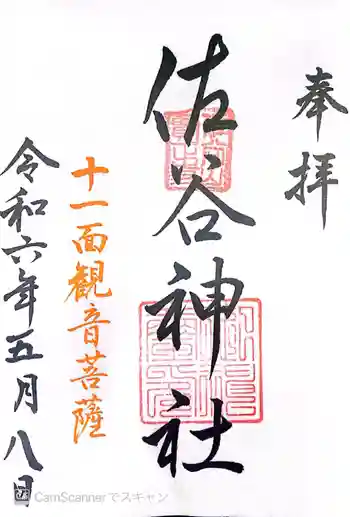 奉拝
佐谷神社
十一面観音菩薩
令和六年五月八日
CamScannerでスキャン